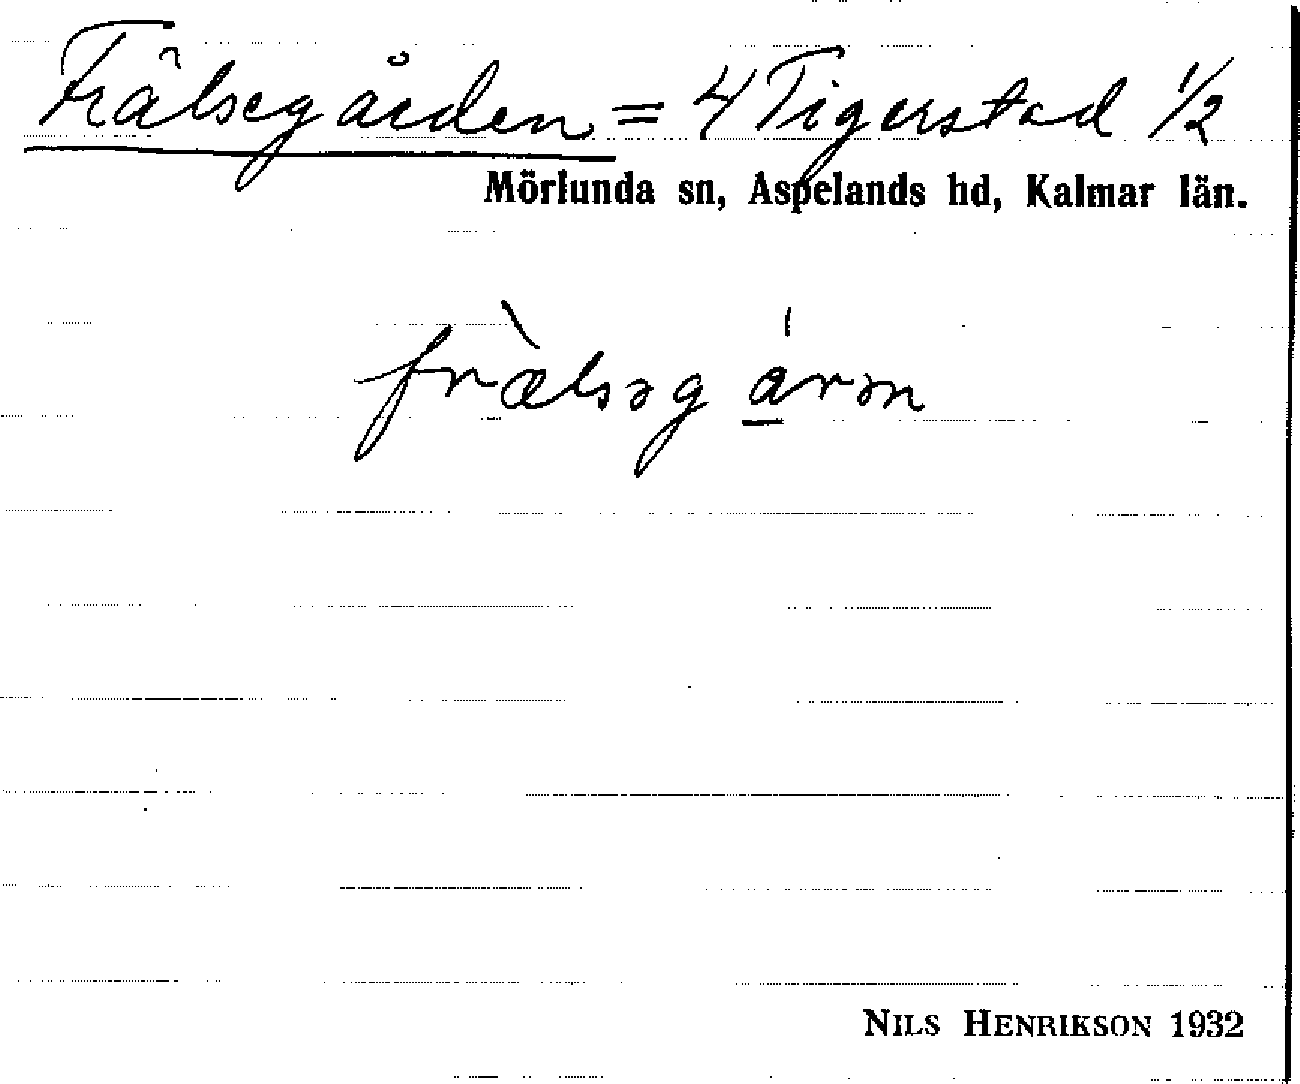 Frälsegården = 4 Tigerstad 1/2
Mörlunda sn, Aspelands hd, Kalmar län.
fræ̀lsəg á̱rən
NILS HENRIKSON 1932